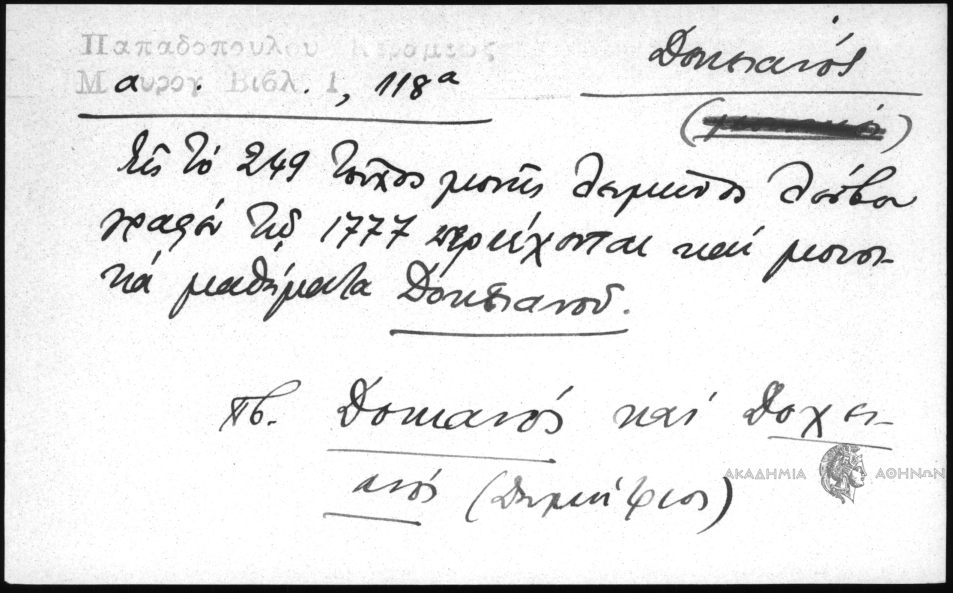 Παπαδοπούλου Κεραμέως
Μαυρογ. Βιβλ. 1, 118α
Δοκειανός
Εἰς τὸ 249 τεῦχος μονῆς Λειμῶνος Λέσβου
γραφὲν τῷ 1777 περιέχονται καὶ μουσι-
κὰ μαθήματα Δοκειανοῦ.
πβ. Δοκιανός καὶ Δοχει-
ανός (Δημήτριος)
ΑΚΑΔΗΜΙΑ ΑΘΗΝΩΝ